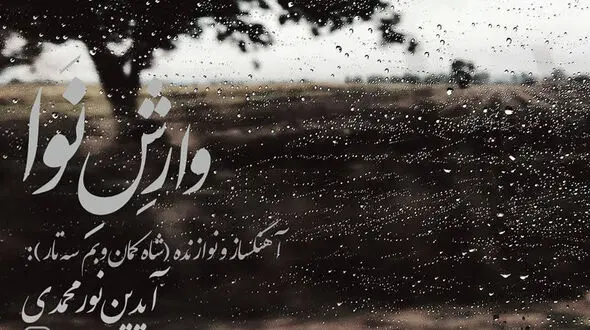 وارِشِ نَوا
آهنگساز و نوازنده (شاه کمان و بَم سه تار):
آیدین نورمحمدی